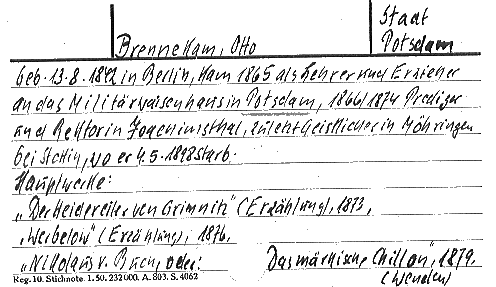 Stadt
Brennekam, Otto
Potsdam
geb. 13.8.1842 in Berlin, kam 1865 als Lehrer und Erzieher
an das Militärwaisenhaus in Potsdam, 1866/1874 Prediger
und Rektor in Joachimsthal, zuletzt Geistlicher in Möhringen
bei Stettin, wo er 4.5.1898 starb.
Hauptwerke:
„Der Heidereiter von Grimnitz" (Erzählung), 1873,
„Werbelow" (Erzählung), 1876,
„Nikolaus v. Buch, oder: Das märkische Chillon", 1879.
(Wenden)
Reg. 10. Stichnote. 1. 50. 232 000. A. 803. S. 4062